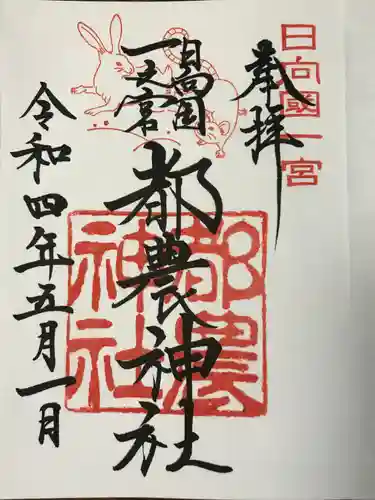 日向國一宮
奉拝
日向国
一之宮
都農神社
都農
神社
令和四年五月一日